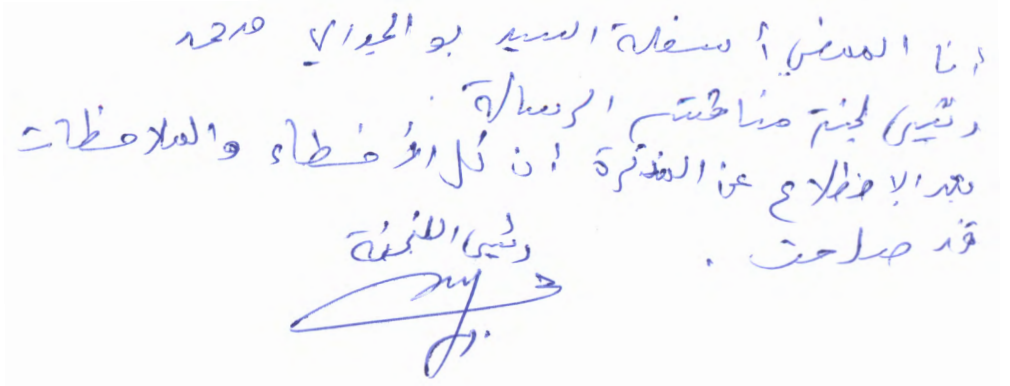 أنا الممضي أسفله السيد بو الجدري محمد
رئيس لجنة مناقشة الرسالة
بعد الاطلاع عن المذكرة ان كل الأخطاء والملاحظات
قد صلحت .
رئيس اللجنة